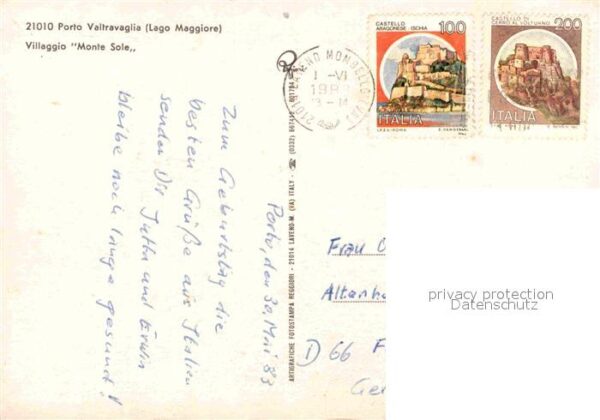 21010 Porto Valtravaglia (Lago Maggiore)
Villaggio "Monte Sole,,
CASTELLO
ARAGONESE · ISCHIA
100
ITALIA
CASTELLO DI
CERRO AL VOLTURNO
200
ITALIA
21014 LAVENO MOMBELLO
1 -VI
198
13-14
ARTIGRAFICHE FOTOSTAMPA REGGIORI - 21014 LAVENO-M. (VA) ITALY - ☎ (0332)
Porto, den 30. Mai 83
Zum Geburtstag die
besten Grüße aus Italien
senden Dir Jutta und Erwin
bleibe noch lange gesund!
Frau
Altenh
D 66
Ge
privacy protection
Datenschutz